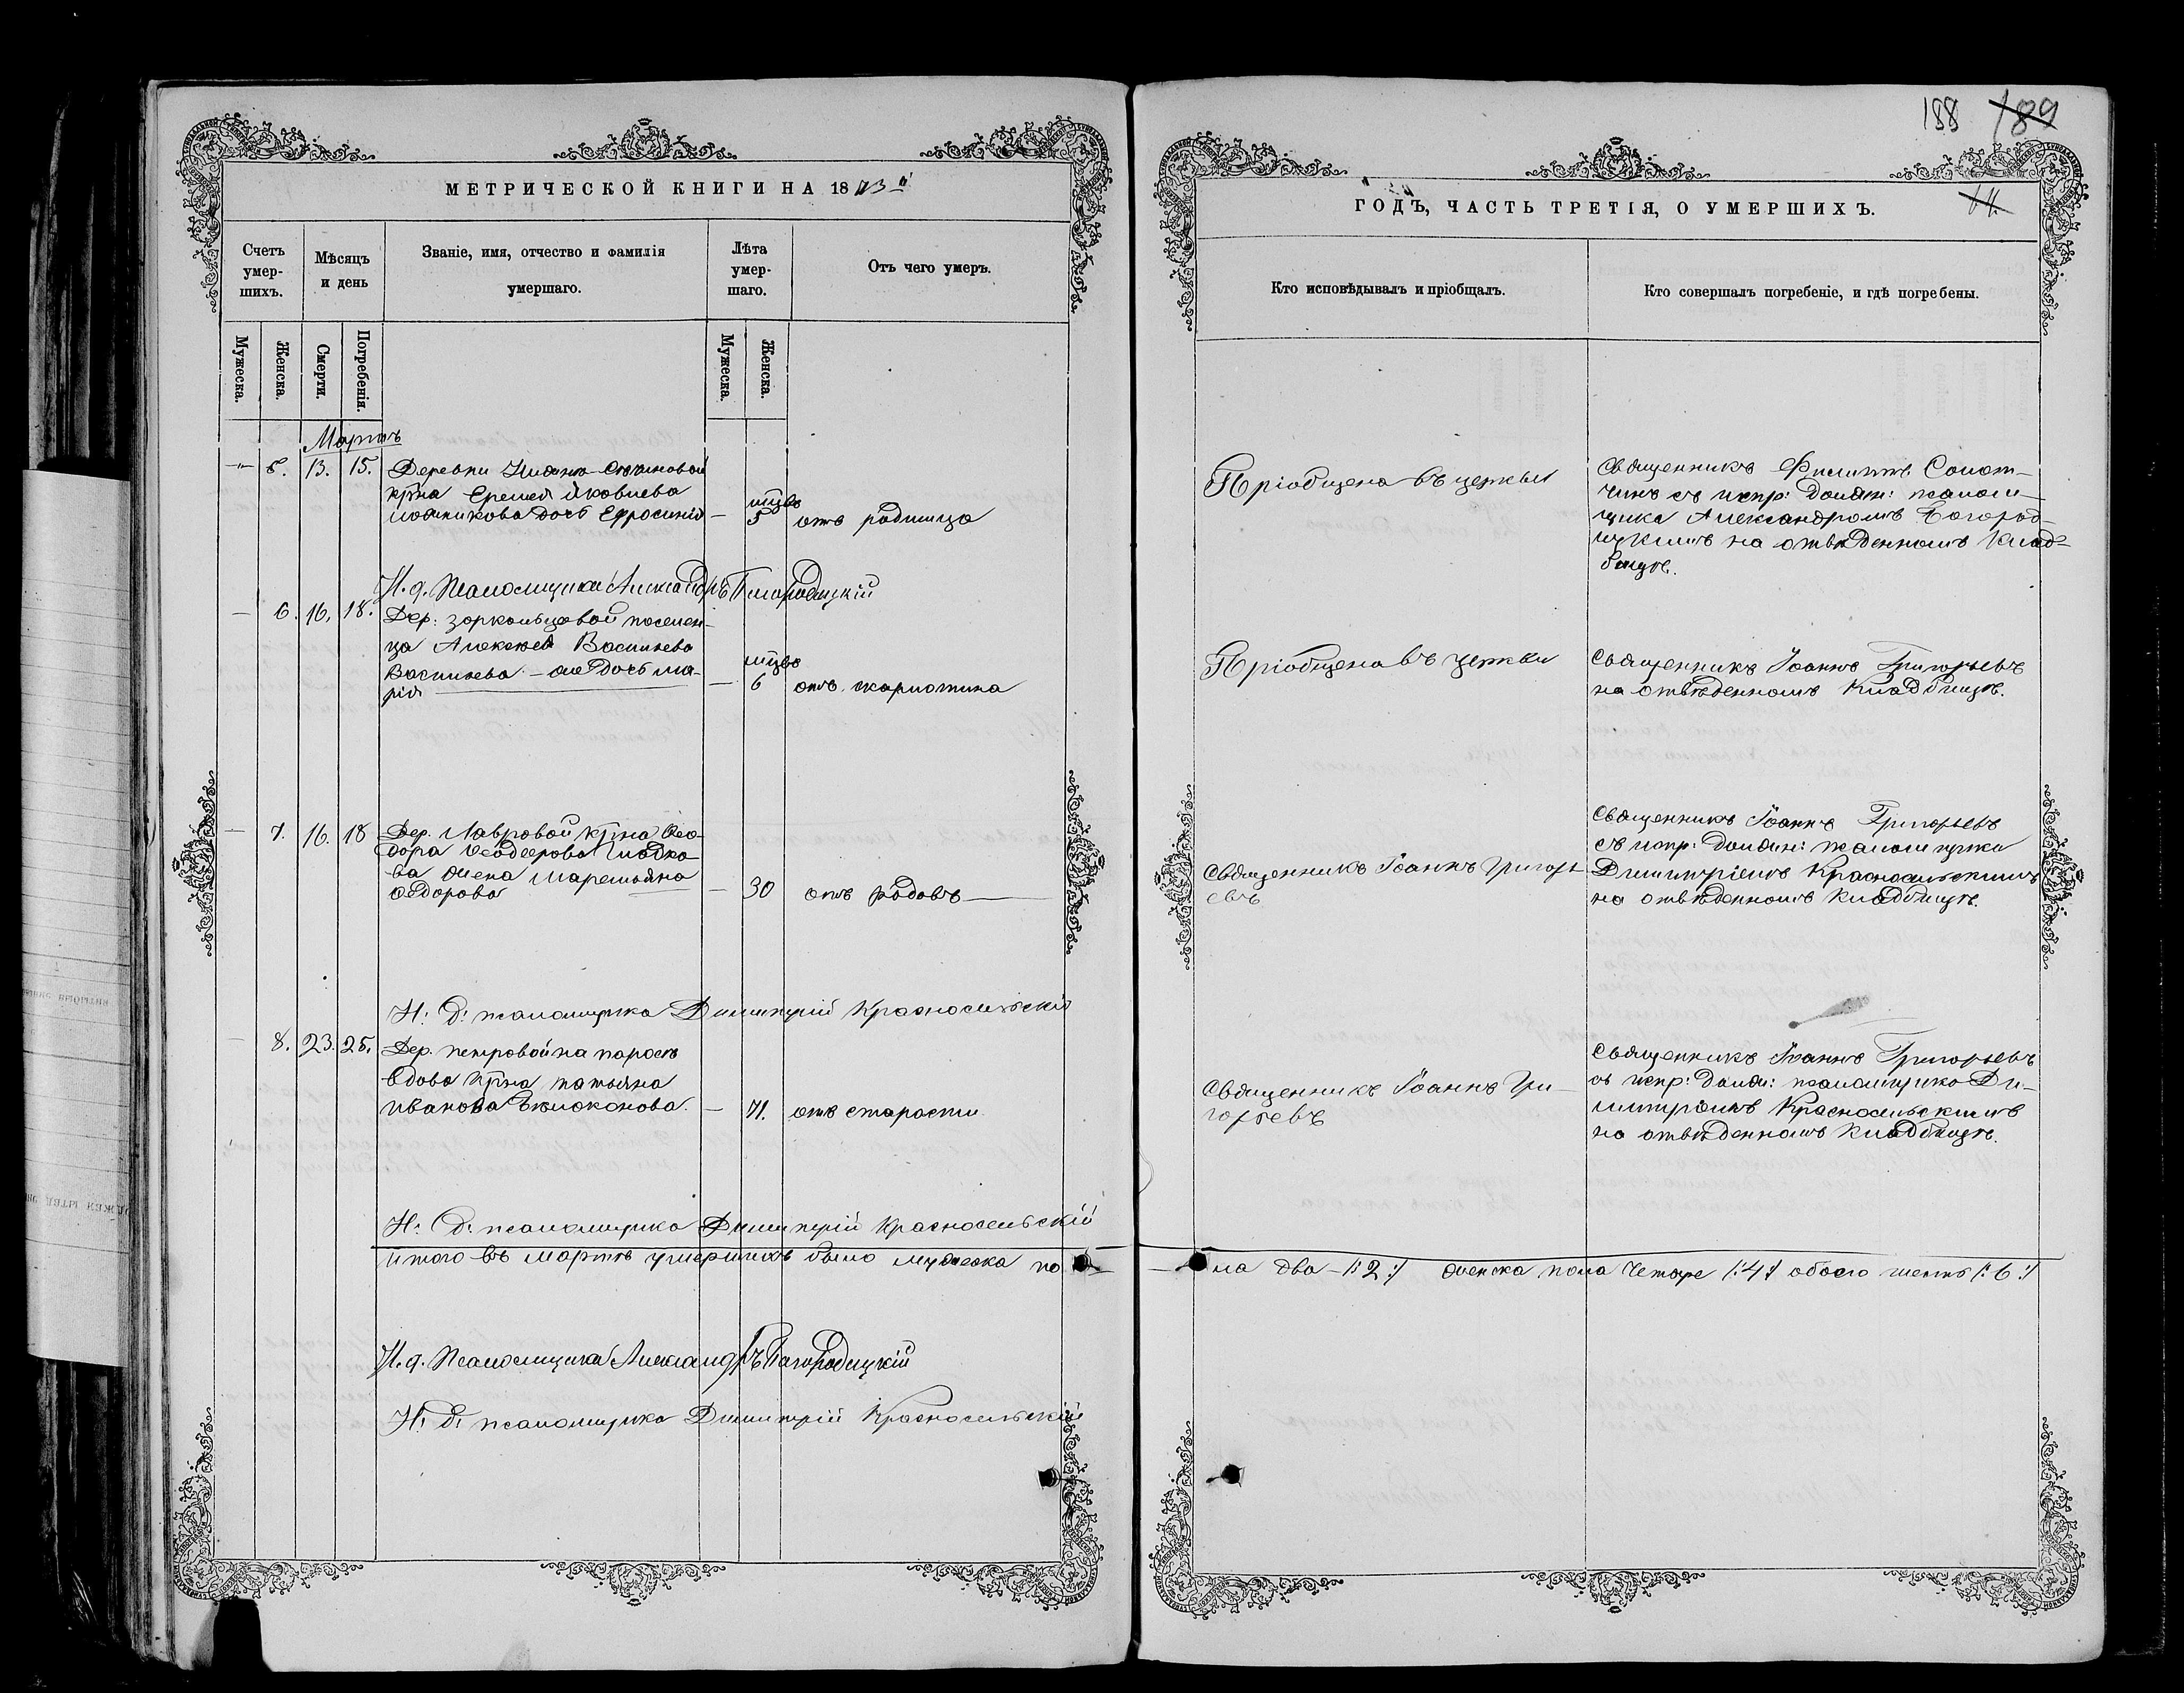 188 189
64.
МЕТРИЧЕСКОЙ КНИГИ НА 1873й
ГОДЪ, ЧАСТЬ ТРЕТІЯ, О УМЕРШИХЪ.
Счетъ умер-
шихъ.
Мѣсяцъ
и день
Званіе, имя, отчество и фамилія
умершаго.
Лѣта
умер-
шаго.
Отъ чего умеръ.
Кто исповѣдывалъ и пріобщалъ.
Кто совершалъ погребеніе, и гдѣ погребены.
Мужеска.
Женска.
Смерти.
Погребенія.
Мужеска.
Женска.
Мартъ
5. 13. 15. Деревни
крна Еремея Яковлева
дочь Ефросинія — мцвъ 5 отъ родимца
Пріобщена въ церкви
Священникъ Филиппъ
съ испр: должн: псаломщика Александромъ Богород-
ицкимъ на отвѣденномъ клад-
бищѣ.
И. д. Псаломщика Александръ Богородицкій
— 6. 16. 18. Дер: Зоркольцовой поселен-
ца Алексея Васильева
Васильева — дочь Ма-
рія — мцвъ 6 отъ скарлатина
Пріобщена въ церкви
Священникъ Іоаннъ Григорьевъ
на отвѣденномъ кладбищѣ.
— 7. 16. 18 Дер. Лавровой крна Ѳео-
дора Ѳеодорова Гладко-
ва жена Маремьяна
Ѳедорова — 30 отъ родовъ —
Священникъ Іоаннъ Григорь-
евъ
Священникъ Іоаннъ Григорьевъ
съ испр: должн: псаломщика
Димитріемъ Красносельскимъ
на отвѣденномъ кладбищѣ.
И: д: псаломщика Димитрій Красносельскій
— 8. 23. 25. Дер. Петровой на
вдова крна Татьяна
Иванова — 71. отъ старости
Священникъ Іоаннъ Гри-
горьевъ
Священникъ Іоаннъ Григорьевъ
съ испр: должн: псаломщика Ди-
митріемъ Красносельскимъ
на отвѣденномъ кладбищѣ.
И: д: псаломщика Димитрій Красносельскій
Итого въ мартѣ умершихъ было мужеска по-
ла два — /: 2 :/ женска пола четыре /: 4 :/ обоего /: 6 :/
И. д. Псаломщика Александръ Богородицкій
И: д: псаломщика Димитрій Красносельскій